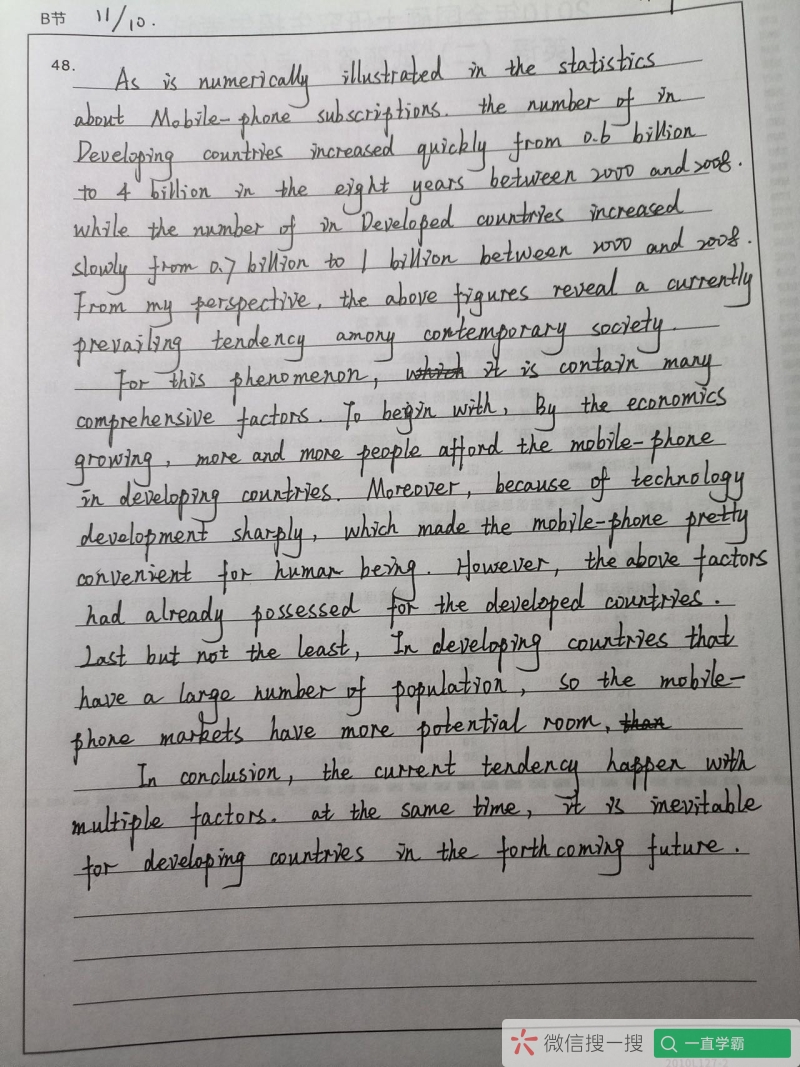 B节 11/10.
48. As is numerically illustrated in the statistics
about Mobile-phone subscriptions. the number of in
Developing countries increased quickly from 0.6 billion
to 4 billion in the eight years between 2000 and 2008.
while the number of in Developed countries increased
slowly from 0.7 billion to 1 billion between 2000 and 2008.
From my perspective, the above figures reveal a currently
prevailing tendency among contemporary society.
For this phenomenon, which it is contain many
comprehensive factors. To begin with, By the economics
growing, more and more people afford the mobile-phone
in developing countries. Moreover, because of technology
development sharply, which made the mobile-phone pretty
convenient for human being. However, the above factors
had already possessed for the developed countries.
Last but not the least, In developing countries that
have a large number of population, so the mobile-
phone markets have more potential room, than
In conclusion, the current tendency happen with
multiple factors. at the same time, it is inevitable
for developing countries in the forth coming future.
微信搜一搜 一直学霸